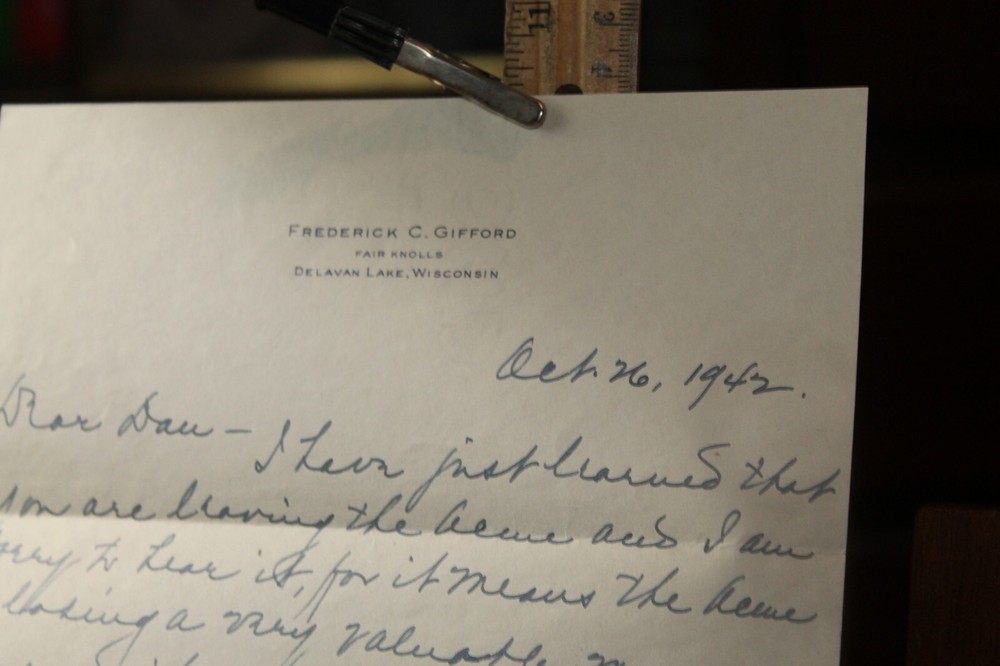 11 3
4
FREDERICK C. GIFFORD
FAIR KNOLLS
DELAVAN LAKE, WISCONSIN
Oct. 26, 1942.
Dear Dan – I have just learned that
you are leaving the Acme and I am
sorry to hear it, for it means the Acme
losing a very valuable